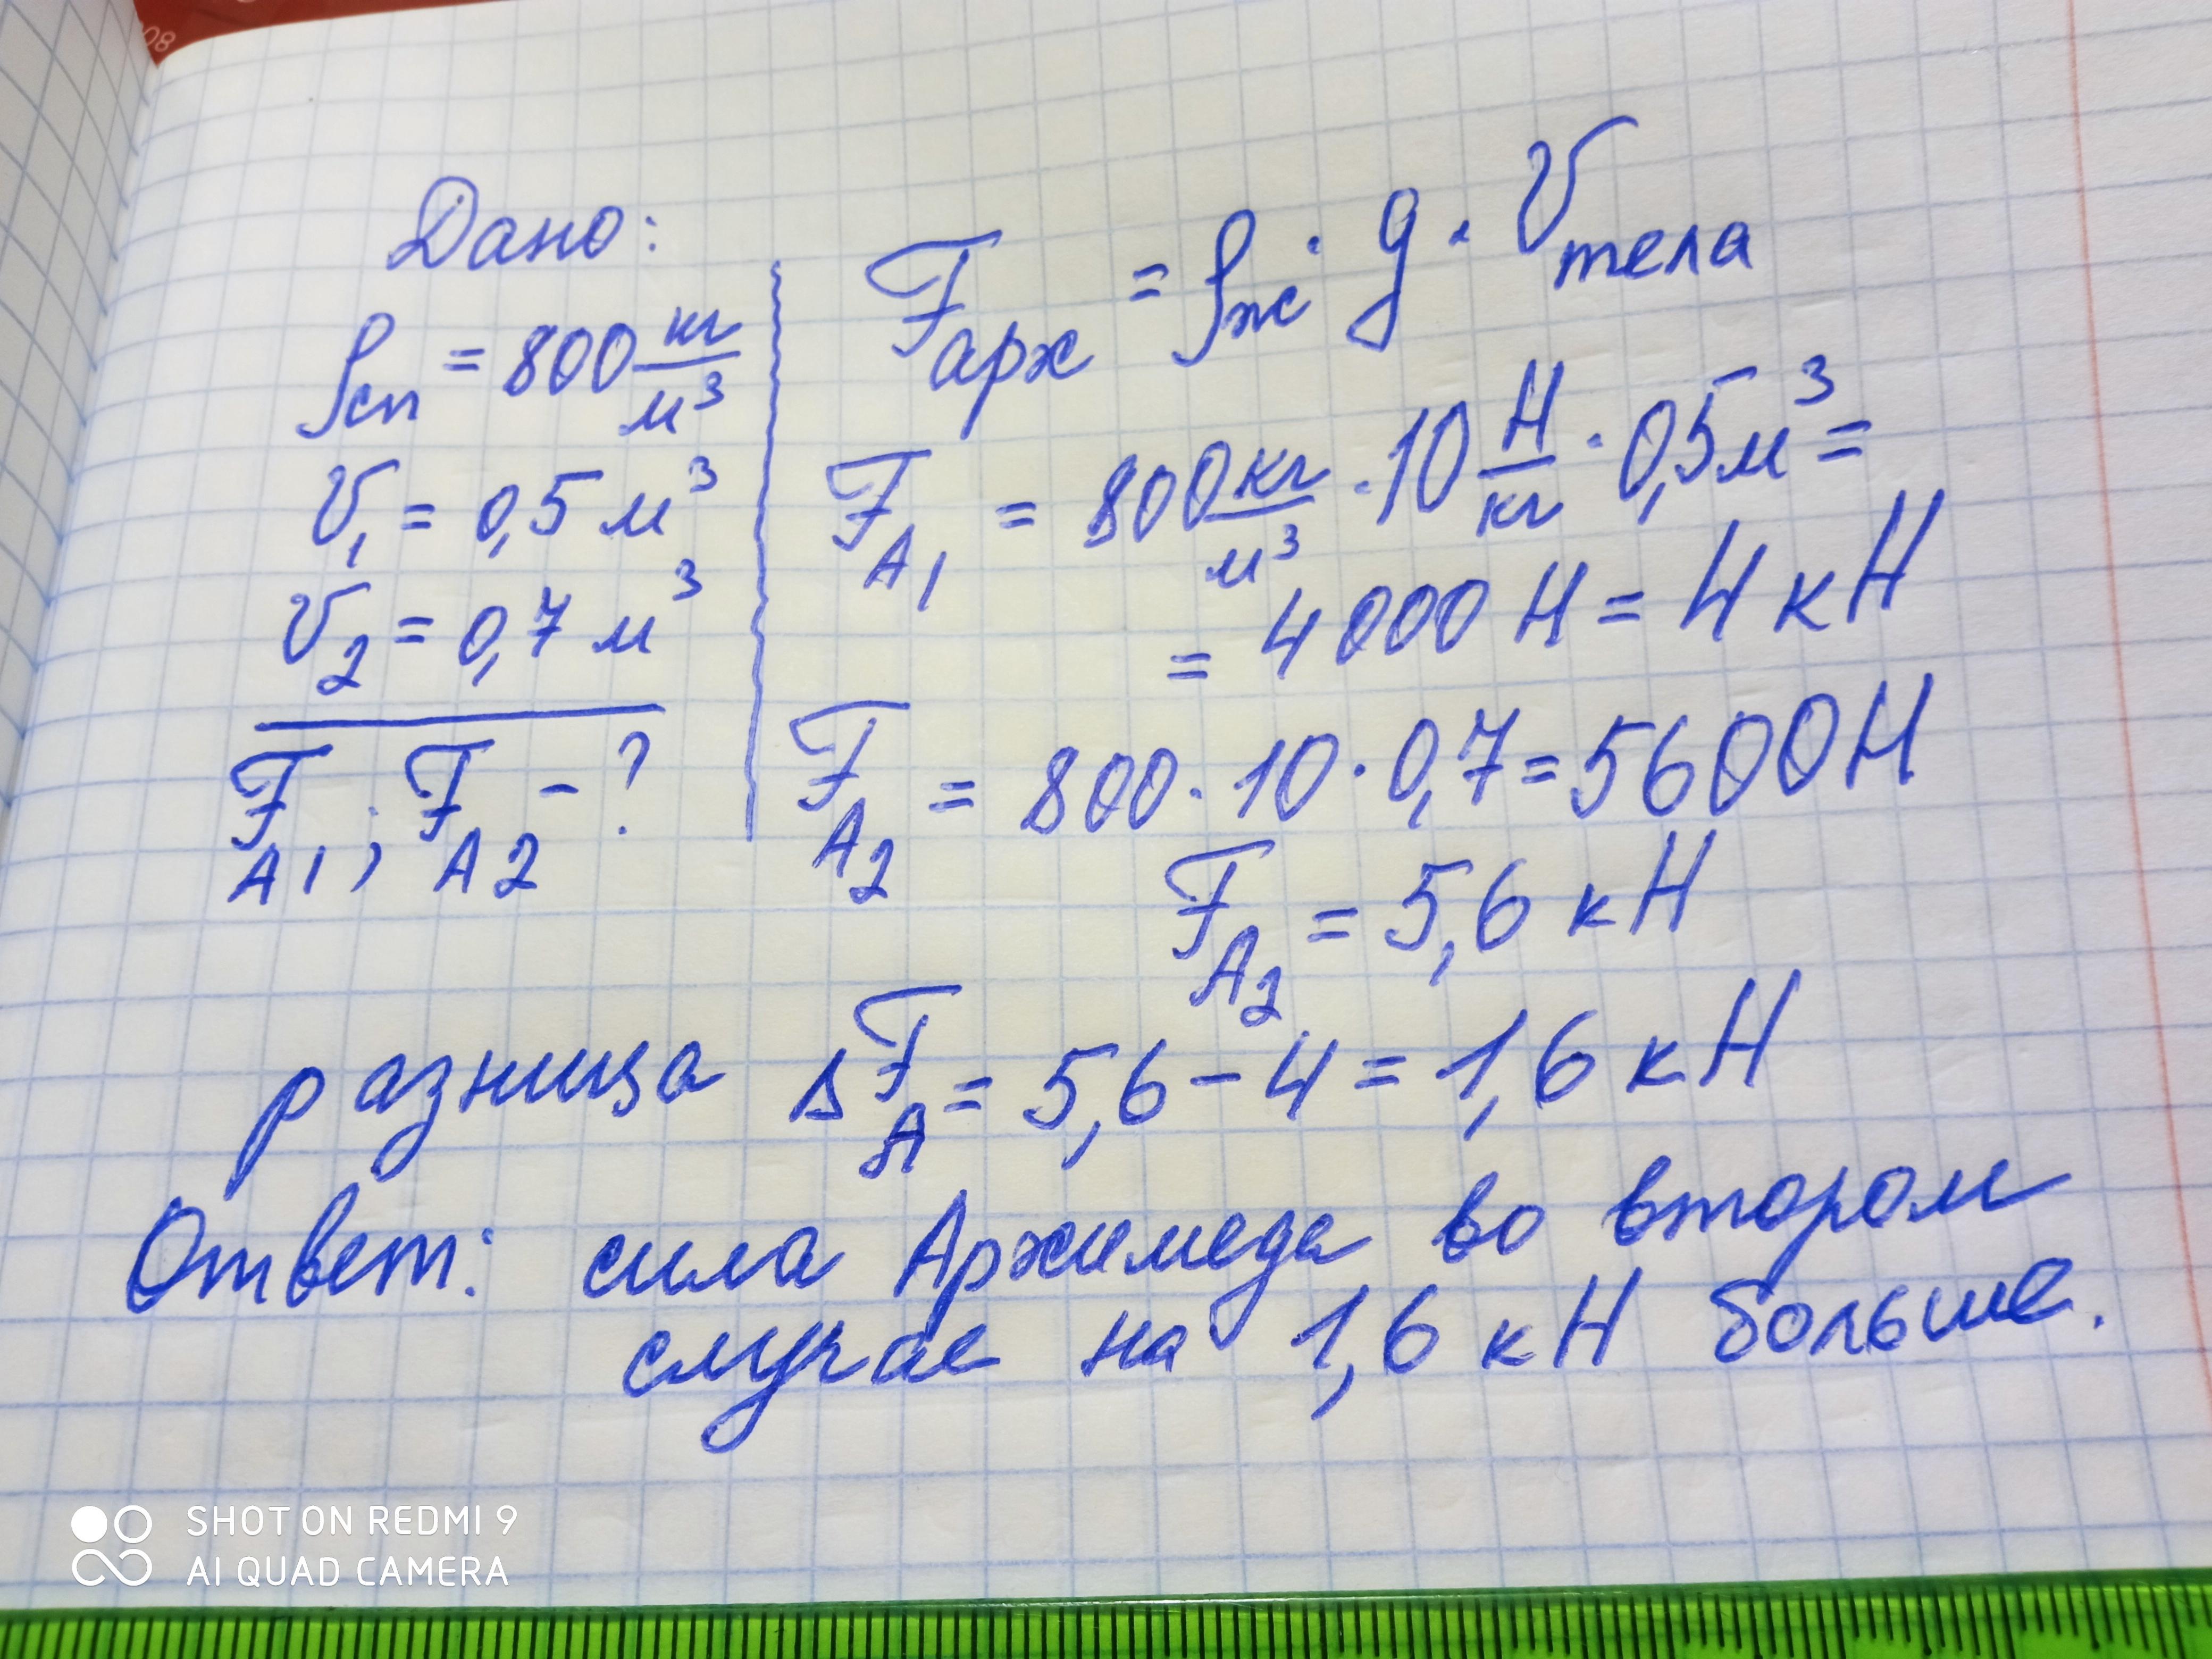 08
Дано:
ρсп = 800 кг/м³
V₁ = 0,5 м³
V₂ = 0,7 м³
F_A1; F_A2 - ?
F_арх = ρж · g · V_тела
F_A1 = 800 кг/м³ · 10 Н/кг · 0,5 м³ =
= 4000 Н = 4 кН
F_A2 = 800 · 10 · 0,7 = 5600 Н
F_A2 = 5,6 кН
разница ΔF_A = 5,6 - 4 = 1,6 кН
Ответ: сила Архимеда во втором
случае на 1,6 кН больше.
SHOT ON REDMI 9
AI QUAD CAMERA